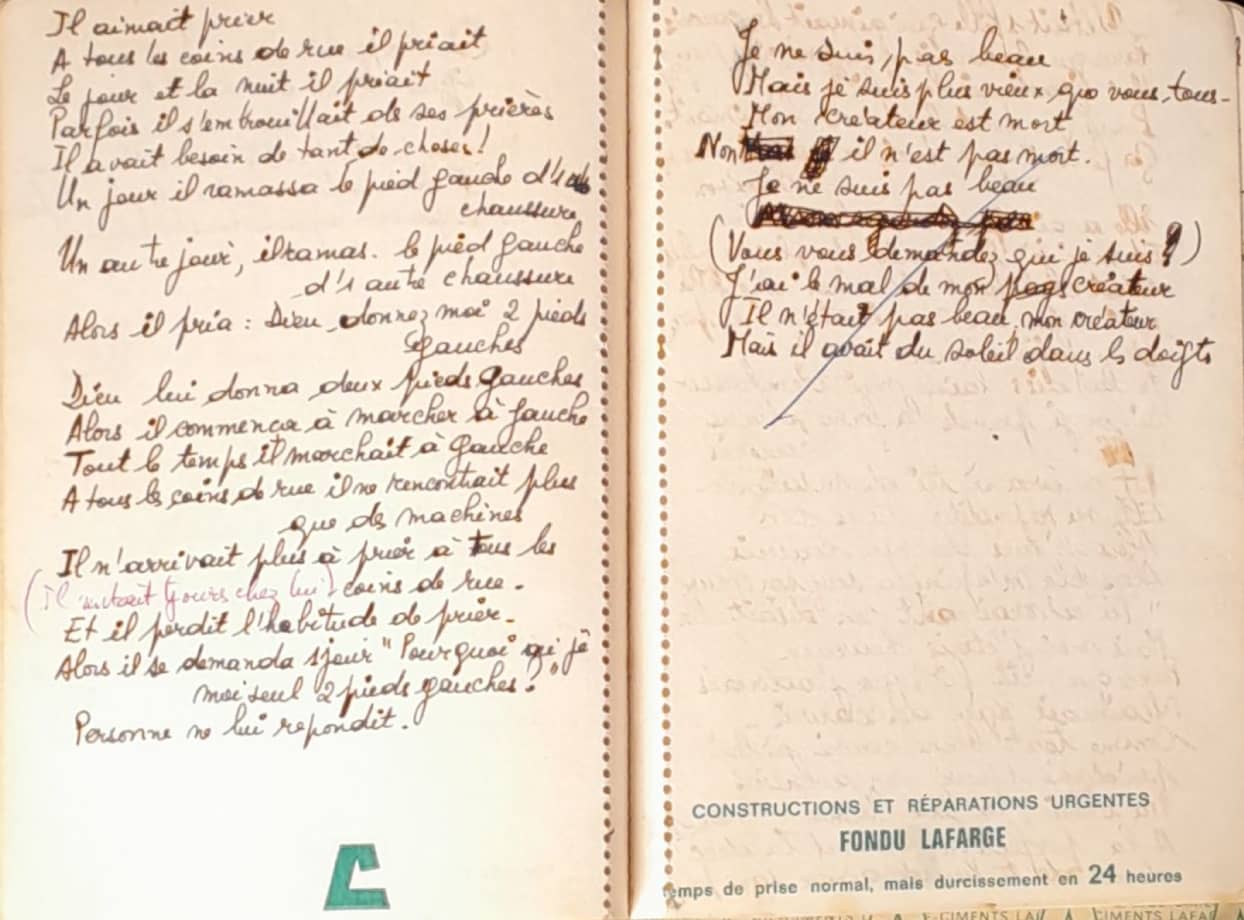 Il aimait prier
A tous les coins de rue il priait
Le jour et la nuit il priait
Parfois il s'embrouillait ds ses prières
Il avait besoin de tant de choses!
Un jour il ramassa le pied gauche d'1
chaussure
Un autre jour, il ramas. le pied gauche
d'1 autre chaussure
Alors il pria : Dieu donnez moi 2 pieds
gauches
Dieu lui donna deux pieds gauches
Alors il commença à marcher à gauche
Tout le temps il marchait à gauche
A tous les coins de rue il ne rencontrait plus
que des machines
Il n'arrivait plus à prier à tous les
coins de rue.
(Il chez lui)
Et il perdit l'habitude de prier.
Alors il se demanda 1 jour "Pourquoi ai je
moi seul 2 pieds gauches?"
Personne ne lui repondit.
Je ne suis pas beau
Mais je suis plus vieux que vous tous-
Mon créateur est mort
Non il n'est pas mort.
Je ne suis pas beau
(Vous vous demandez qui je suis?)
J'ai le mal de mon créateur
Il n'était pas beau mon créateur
Mais il avait du soleil dans ls doigts
CONSTRUCTIONS ET RÉPARATIONS URGENTES
FONDU LAFARGE
temps de prise normal, mais durcissement en 24 heures